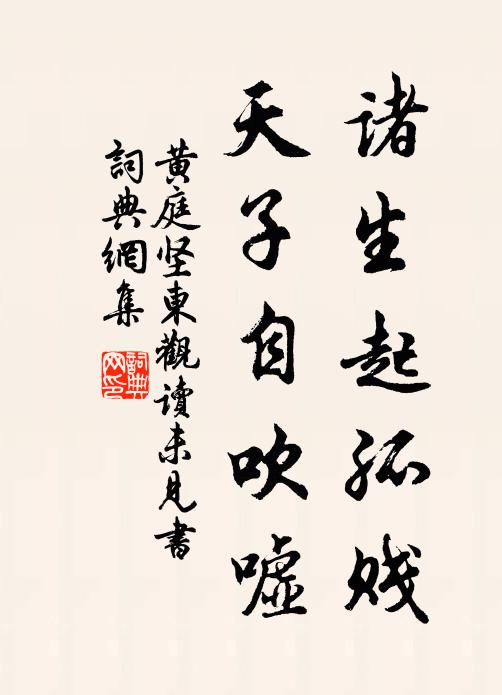 诸生起孤贱
天子自吹嘘
黄庭坚東觀讀未見書
詞典網集
詞典网印